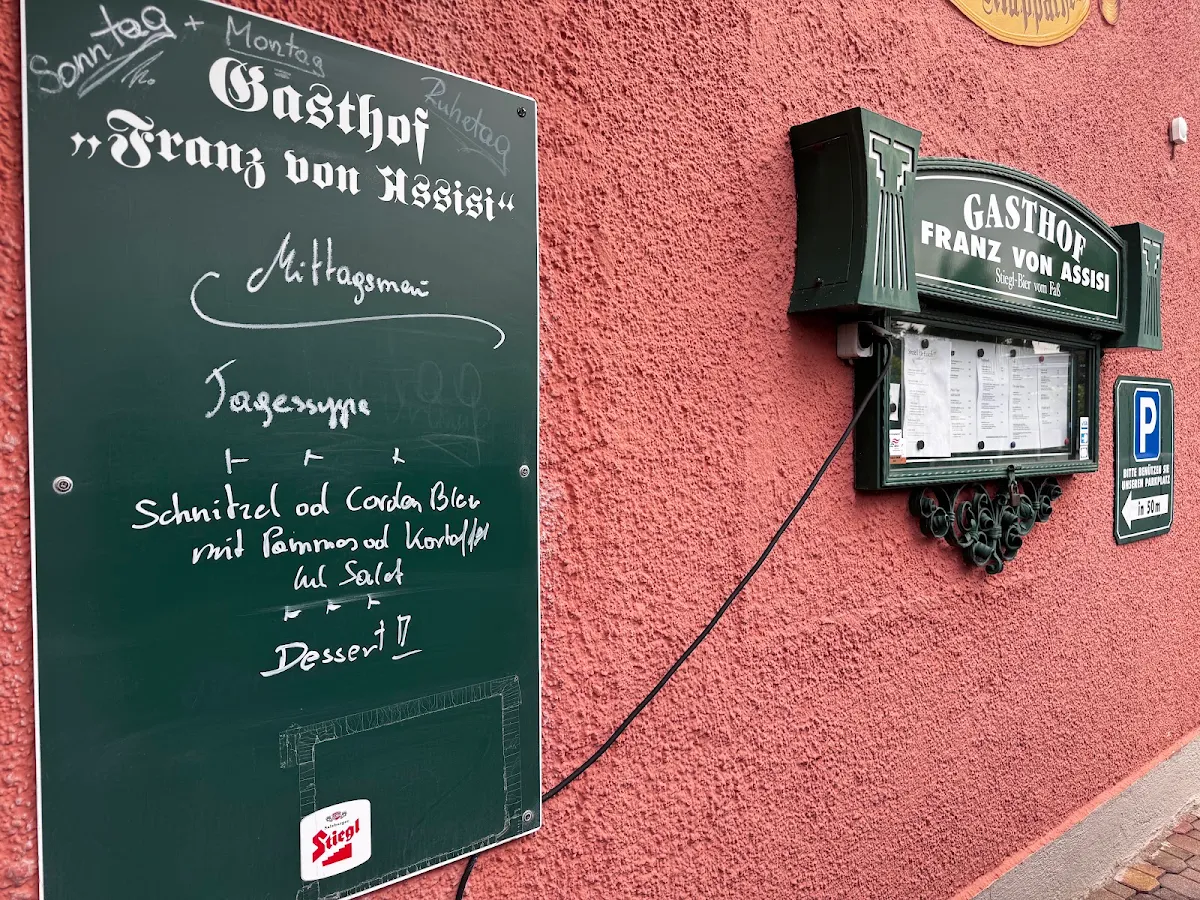 Sonntag + Montag
Ruhetag
Gasthof
„Franz von Assisi“
Mittagsmenü
Tagessuppe
Schnitzel od Cordon Bleu
mit Pommes od Kartoffel
und Salat
Dessert !!
Salzburger
Stiegl
GASTHOF
FRANZ VON ASSISI
Stiegl-Bier vom Faß
P
BITTE BENÜTZEN SIE
UNSEREN PARKPLATZ
in 50m